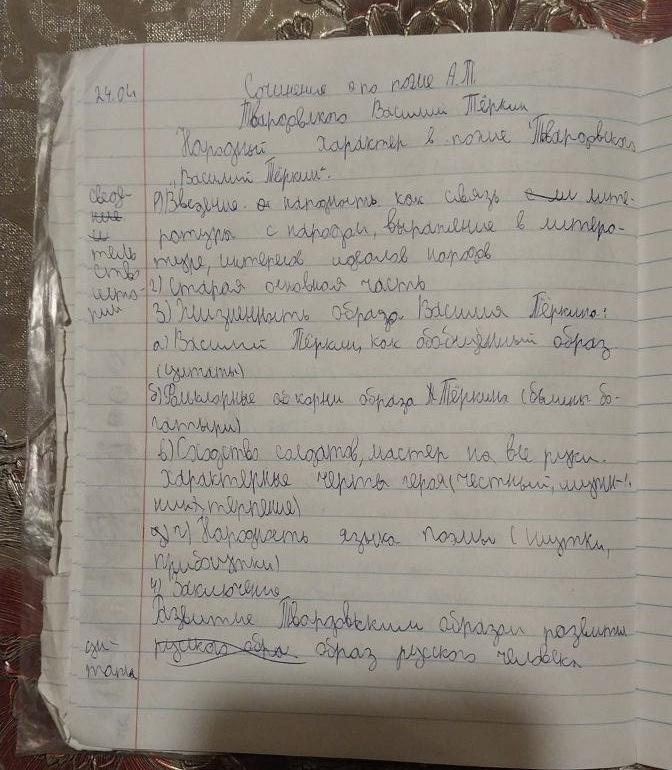 24.04
Сочинения по поэме А.Т.
Твардовского Василий Тёркин
Народный характер в поэме Твардовского
"Василий Тёркин".
1) Введение. народность как связь лите-
ратуры с народом, выражение в литера-
туре, интересов идеалов народов
2) Старая основная часть
3) Жизненность образа Василия Тёркина:
а) Василий Тёркин, как обобщённый образ
(цитаты)
б) Фольклорные корни образа Тёркина (былины бо-
гатыри)
в) Сходство солдатов, мастер на все руки.
Характерные черты героя (честный,
терпение)
г) Народность языка поэмы (шутки,
прибаутки)
4) Заключение
Развитие Твардовским образом развити
образ русского человека
тель
ство
исто-
рии
ци-
таты